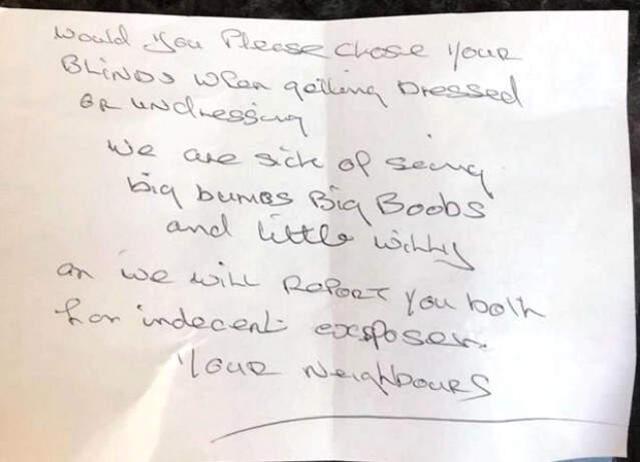 Would you Please close your
BLINDS when getting Dressed
or undressing
We are sick of seing
big bumbs Big Boobs
and little willy
or we will REPORT you both
for indecent exsposer.
your Neighbours